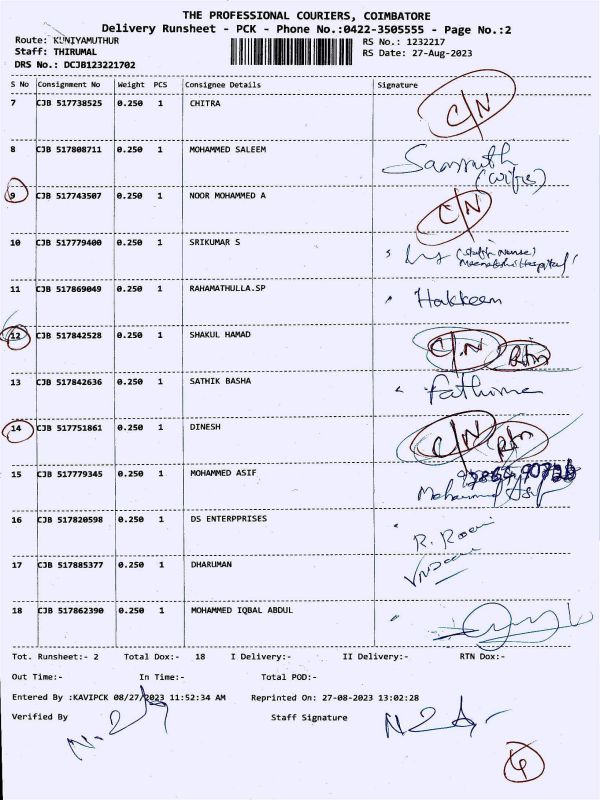 THE PROFESSIONAL COURIERS, COIMBATORE
Delivery Runsheet - PCK - Phone No.:0422-3505555 - Page No.:2
Route: KUNIYAMUTHUR RS No.: 1232217
Staff: THIRUMAL RS Date: 27-Aug-2023
DRS No.: DCJB123221702
S No Consignment No Weight PCS Consignee Details Signature
7 CJB 517738525 0.250 1 CHITRA C/N
8 CJB 517808711 0.250 1 MOHAMMED SALEEM
(wife)
9 CJB 517743507 0.250 1 NOOR MOHAMMED A C/N
10 CJB 517779400 0.250 1 SRIKUMAR S (staff Nurse)
Meenakshi Hospital
11 CJB 517869049 0.250 1 RAHAMATHULLA.SP Hakkeem
12 CJB 517842528 0.250 1 SHAKUL HAMAD C/N Rtn
13 CJB 517842636 0.250 1 SATHIK BASHA Fathima
14 CJB 517751861 0.250 1 DINESH C/N Rtn
15 CJB 517779345 0.250 1 MOHAMMED ASIF
Mohammed Asif
16 CJB 517820598 0.250 1 DS ENTERPPRISES
R.
17 CJB 517885377 0.250 1 DHARUMAN
18 CJB 517862390 0.250 1 MOHAMMED IQBAL ABDUL
Tot. Runsheet:- 2 Total Dox:- 18 I Delivery:- II Delivery:- RTN Dox:-
Out Time:- In Time:- Total POD:-
Entered By :KAVIPCK 08/27/2023 11:52:34 AM Reprinted On: 27-08-2023 13:02:28
Verified By Staff Signature